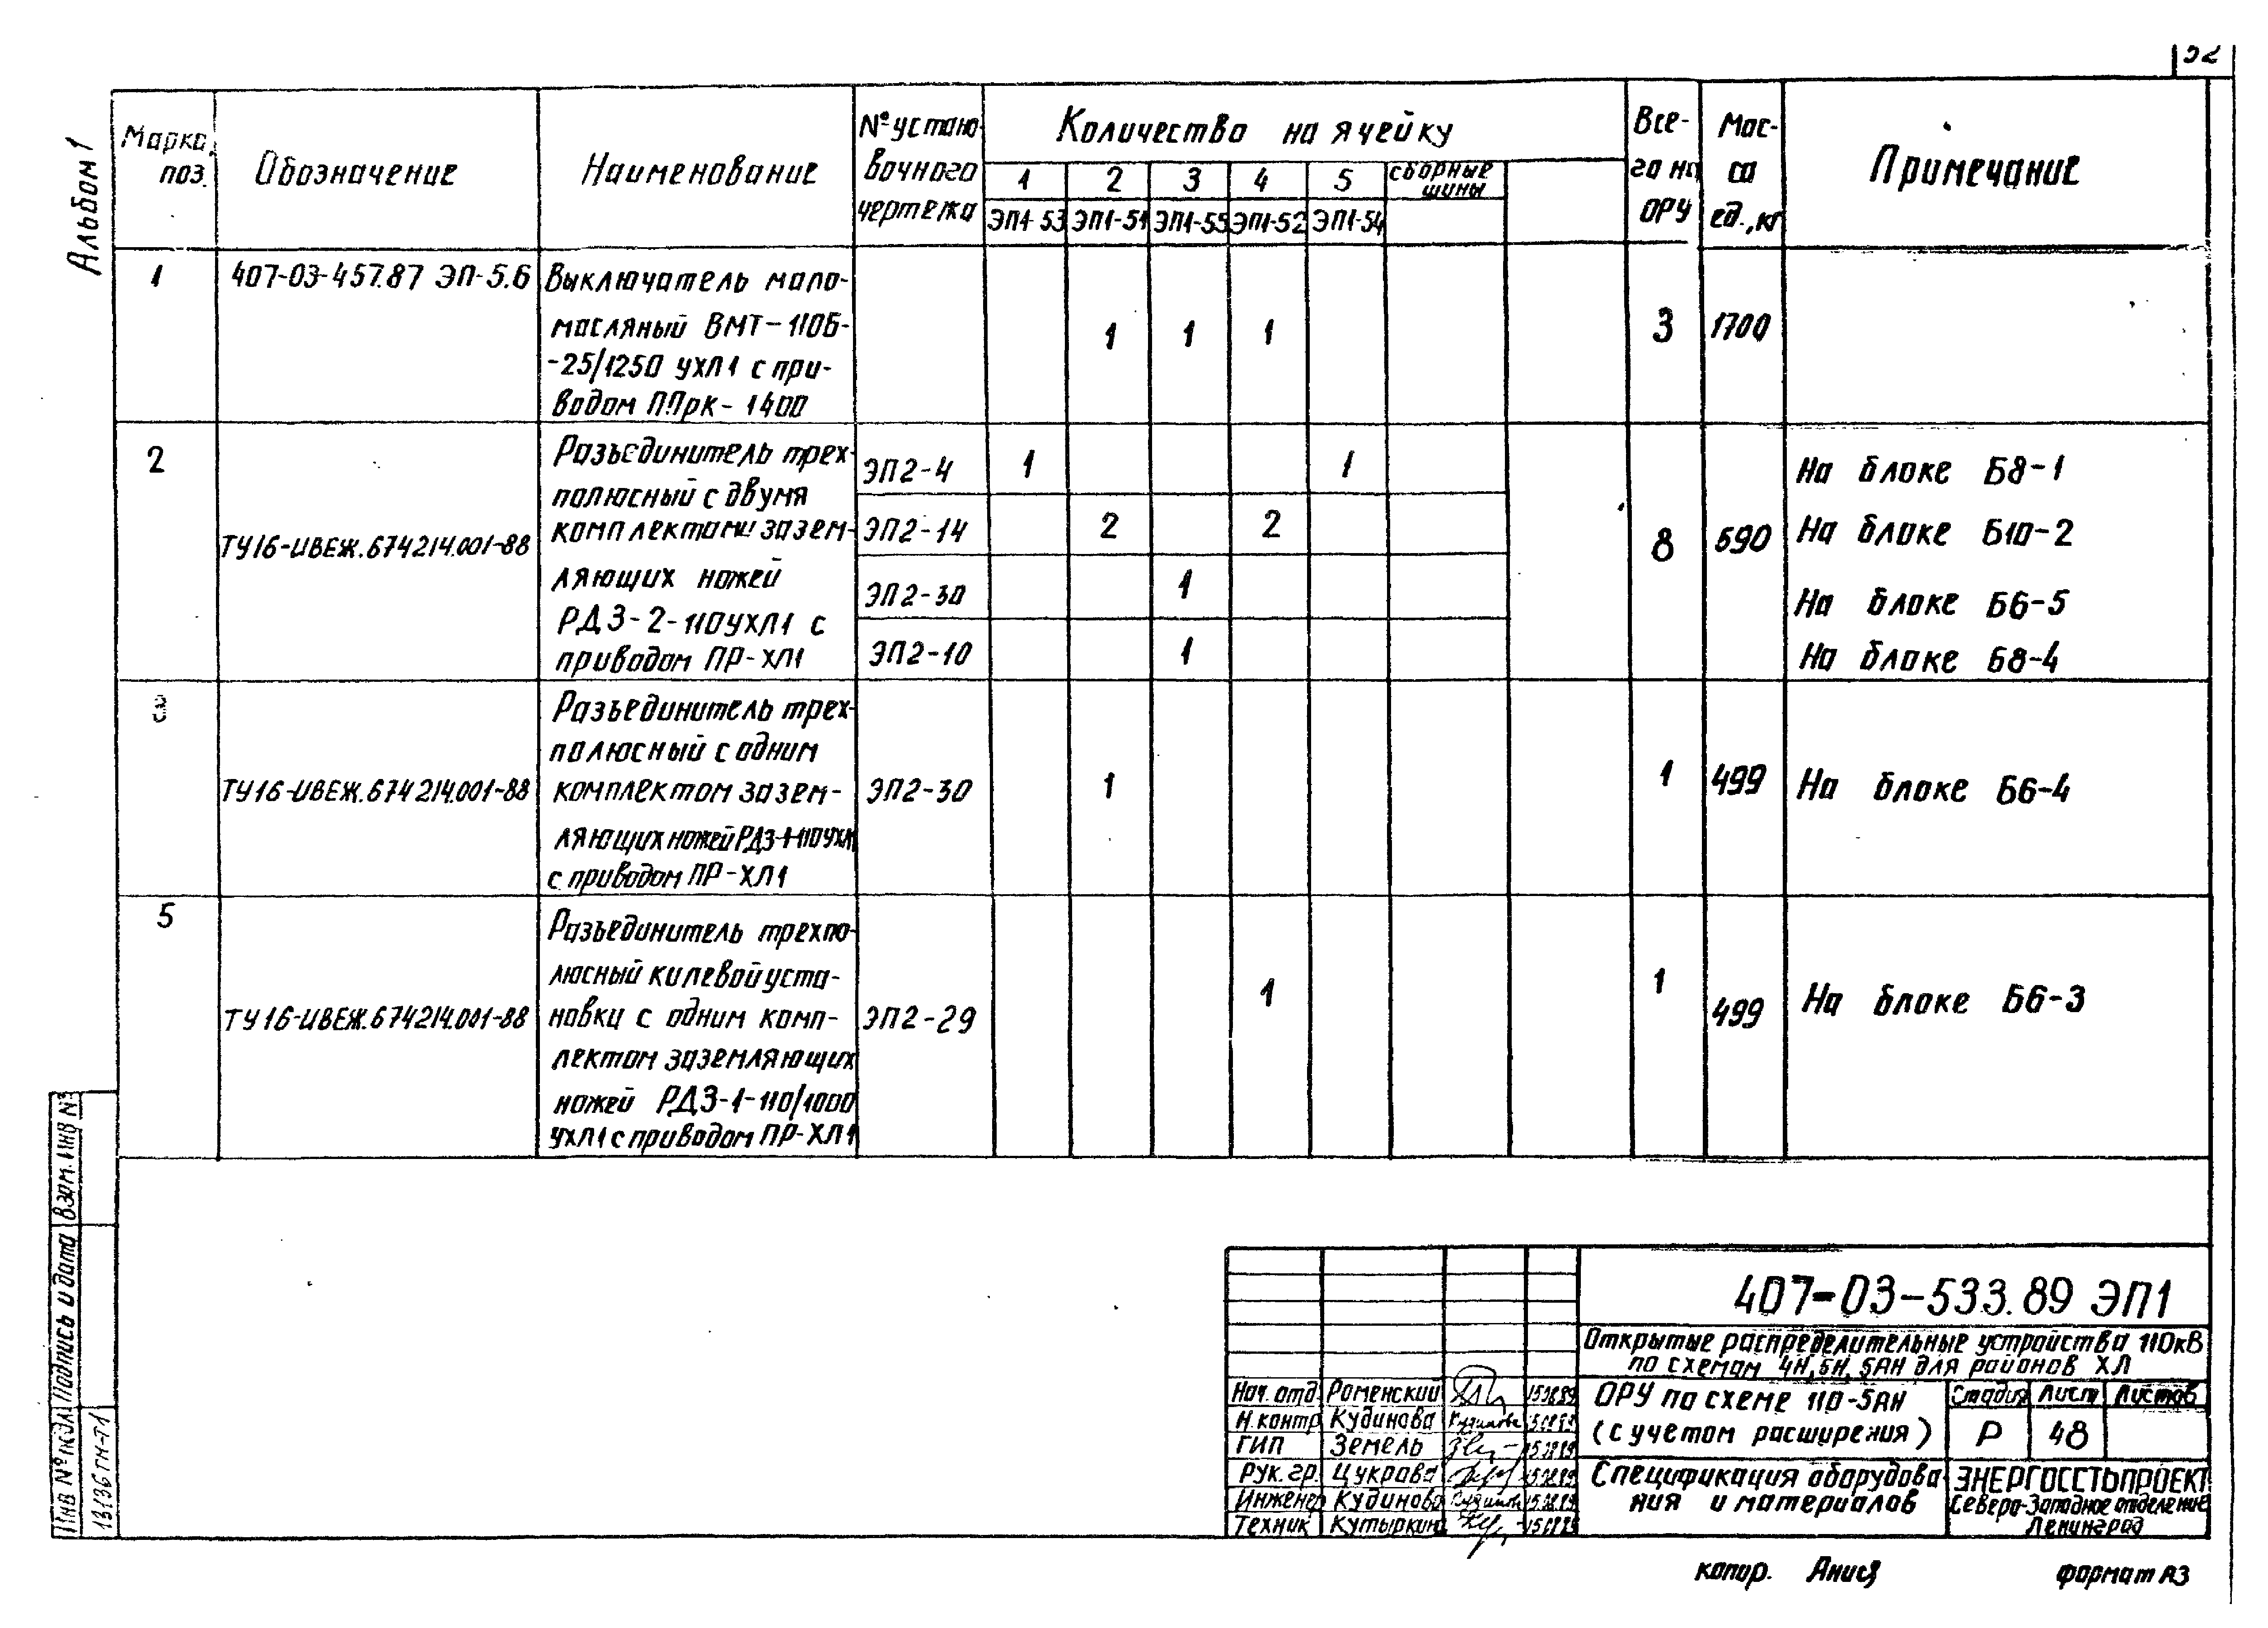 52
Альбом 1
Марка, поз.
Обозначение
Наименование
№ устано-
вочного
чертежа
Количество на ячейку
1 2 3 4 5 сборные шины
ЭП1-53 ЭП1-51 ЭП1-55 ЭП1-52 ЭП1-54
Все-
го на
ОРУ
Мас-
са
ед., кг
Примечание
1
407-03-457.87 ЭП-5.6
Выключатель мало-
масляный ВМТ-110Б-
-25/1250 УХЛ1 с при-
водом ППрК-1400
1 1 1
3
1700
2
ТУ16-ИВЕЖ.674214.001-88
Разъединитель трех-
полюсный с двумя
комплектами зазем-
ляющих ножей
РДЗ-2-110УХЛ1 с
приводом ПР-ХЛ1
ЭП2-4 1 1
ЭП2-14 2 2
ЭП2-30 1
ЭП2-10 1
8
590
На блоке Б8-1
На блоке Б10-2
На блоке Б6-5
На блоке Б8-4
3
ТУ16-ИВЕЖ.674214.001-88
Разъединитель трех-
полюсный с одним
комплектом зазем-
ляющих ножей РДЗ-1-110УХЛ1
с приводом ПР-ХЛ1
ЭП2-30
1
1
499
На блоке Б6-4
5
ТУ16-ИВЕЖ.674214.001-88
Разъединитель трехпо-
люсный килевой уста-
новки с одним комп-
лектом заземляющих
ножей РДЗ-1-110/1000
УХЛ1 с приводом ПР-ХЛ1
ЭП2-29
1
1
499
На блоке Б6-3
Взам. инв №
Подпись и дата
Инв № подл
13136тм-т1
407-03-533.89 ЭП1
Открытые распределительные устройства 110кВ
по схемам 4Н, 5Н, 5АН для районов ХЛ
Нач. отд. Роменский
Н. контр Кудинова
ГИП Земель
Рук. гр. Цукрова
Инженер Кудинова
Техник Кутыркина
ОРУ по схеме 110-5АН
(с учетом расширения)
Стадия Лист Листов
Р 48
Спецификация оборудова-
ния и материалов
ЭНЕРГОСЕТЬПРОЕКТ
Северо-Западное отделение
Ленинград
копир.
формат А3